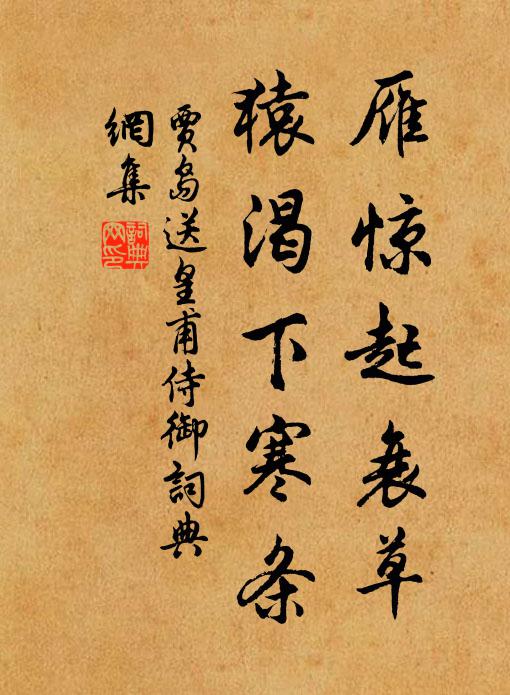 雁惊起衰草
猿渴下寒条
賈島送皇甫侍御詞典
網集
詞典
网印